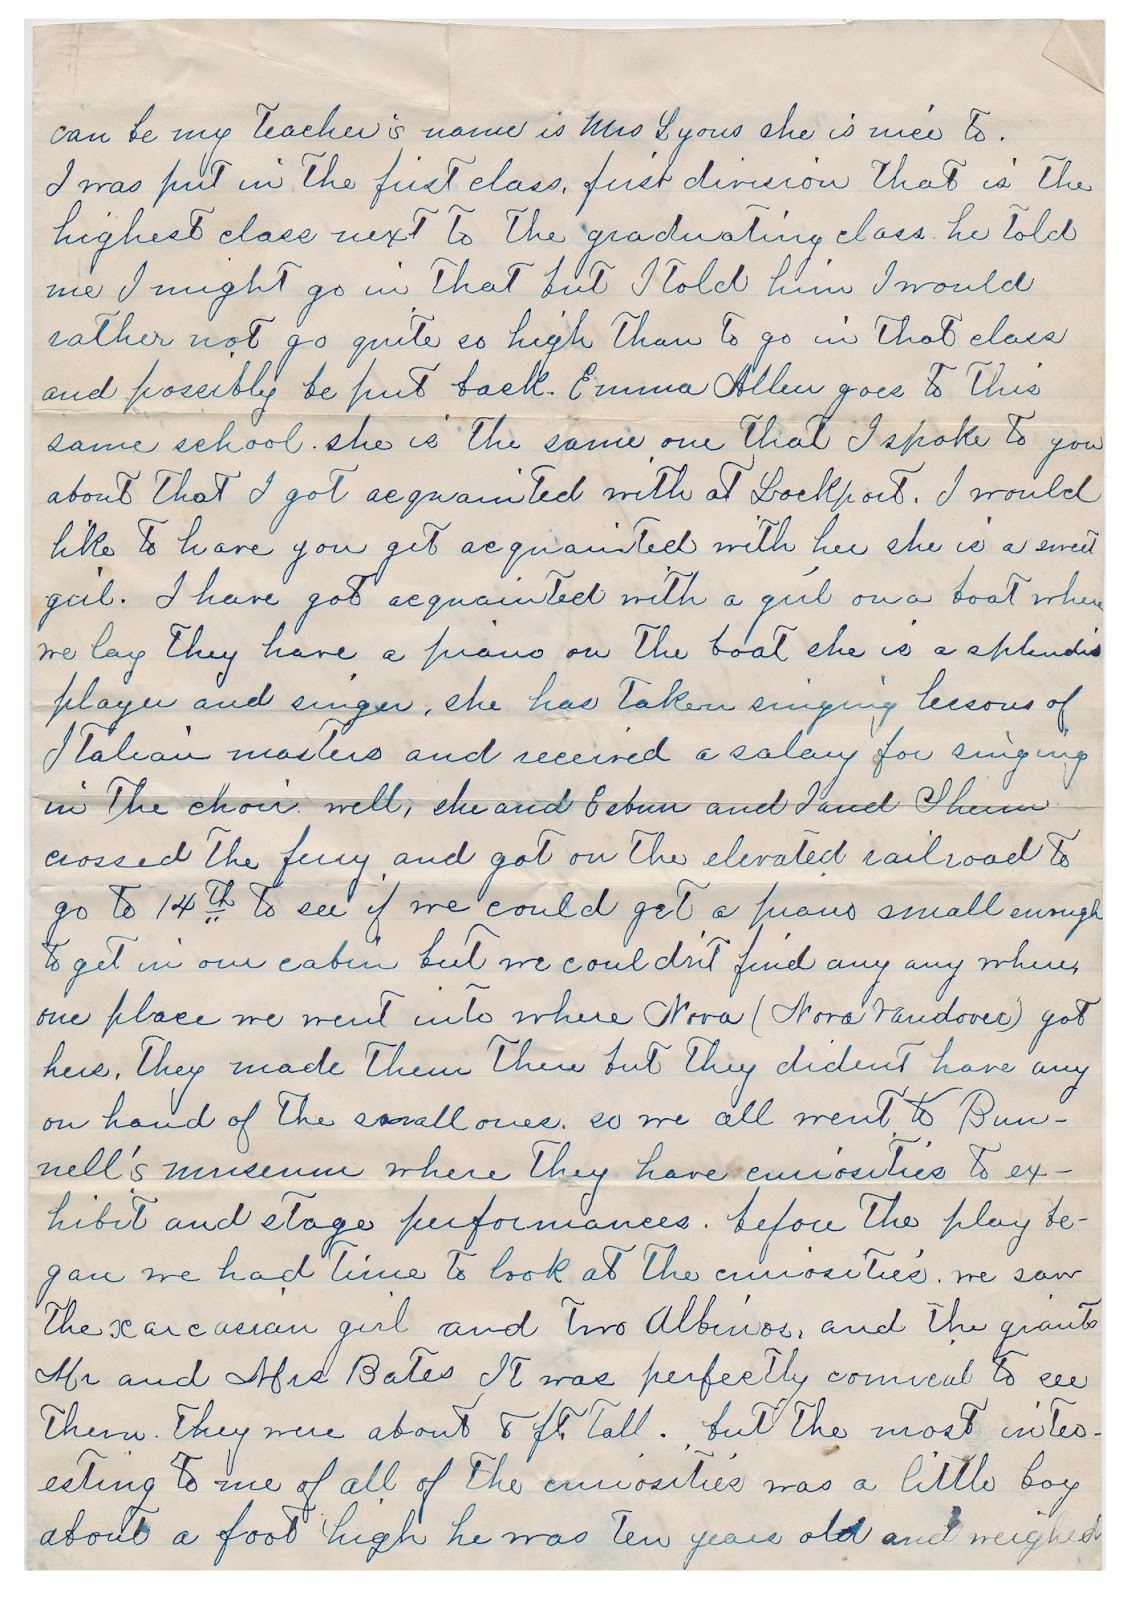 can be my teacher's name is Mrs Lyons she is nice to.
I was put in the first class, first division that is the
highest class next to the graduating class. he told
me I might go in that but I told him I would
rather not go quite so high than to go in that class
and possibly be put back. Emma Allen goes to this
same school. she is the same one that I spoke to you
about that I got acquainted with at Lockport. I would
like to have you get acquainted with her she is a sweet
girl. I have got acquainted with a girl on a boat where
we lay they have a piano on the boat she is a splendid
player and singer, she has taken singing lessons of
Italian masters and received a salary for singing
in the choir. well, she and and I and
crossed the ferry and got on the elevated railroad to
go to 14th to see if we could get a piano small enough
to get in our cabin but we could'nt find any any where,
one place we went into where Nova (Nova Vandover) got
hers, they made them there but they dident have any
on hand of the small ones. so we all went to Bun-
nell's museum where they have curiosities to ex-
hibit and stage performances. before the play be-
gan we had time to look at the curiosities. we saw
the xarcasian girl and two Albinos, and the giants
Mr and Mrs Bates It was perfectly comical to see
them. they were about 8 ft tall. but the most inter-
esting to me of all of the curiosities was a little boy
about a foot high he was ten years old and weighed